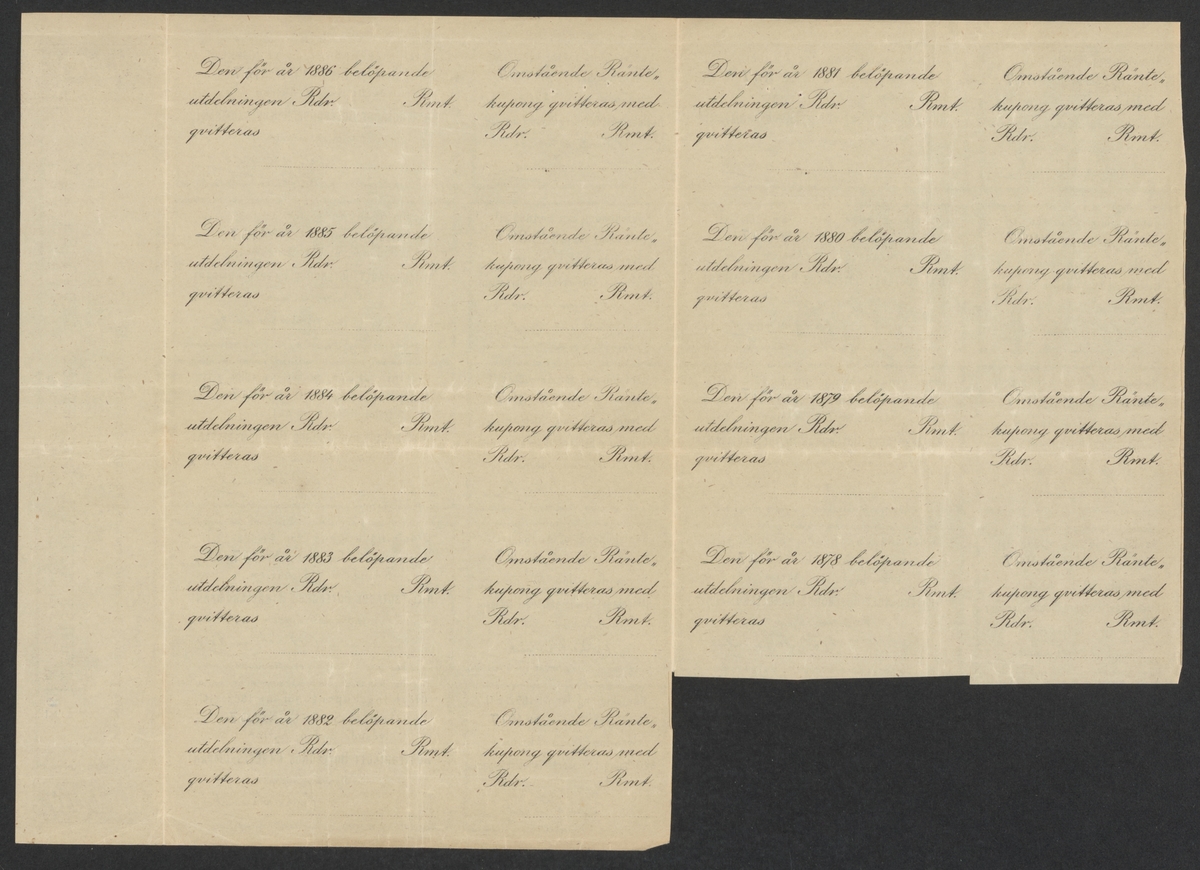 Den för år 1886 belöpande
utdelningen Rdr. Rmt.
qvitteras
Omstående Ränte„
kupong qvitteras med
Rdr. Rmt.
Den för år 1881 belöpande
utdelningen Rdr. Rmt.
qvitteras
Omstående Ränte„
kupong qvitteras med
Rdr. Rmt.
Den för år 1885 belöpande
utdelningen Rdr. Rmt.
qvitteras
Omstående Ränte„
kupong qvitteras med
Rdr. Rmt.
Den för år 1880 belöpande
utdelningen Rdr. Rmt.
qvitteras
Omstående Ränte„
kupong qvitteras med
Rdr. Rmt.
Den för år 1884 belöpande
utdelningen Rdr. Rmt.
qvitteras
Omstående Ränte„
kupong qvitteras med
Rdr. Rmt.
Den för år 1879 belöpande
utdelningen Rdr. Rmt.
qvitteras
Omstående Ränte„
kupong qvitteras med
Rdr. Rmt.
Den för år 1883 belöpande
utdelningen Rdr. Rmt.
qvitteras
Omstående Ränte„
kupong qvitteras med
Rdr. Rmt.
Den för år 1878 belöpande
utdelningen Rdr. Rmt.
qvitteras
Omstående Ränte„
kupong qvitteras med
Rdr. Rmt.
Den för år 1882 belöpande
utdelningen Rdr. Rmt.
qvitteras
Omstående Ränte„
kupong qvitteras med
Rdr. Rmt.